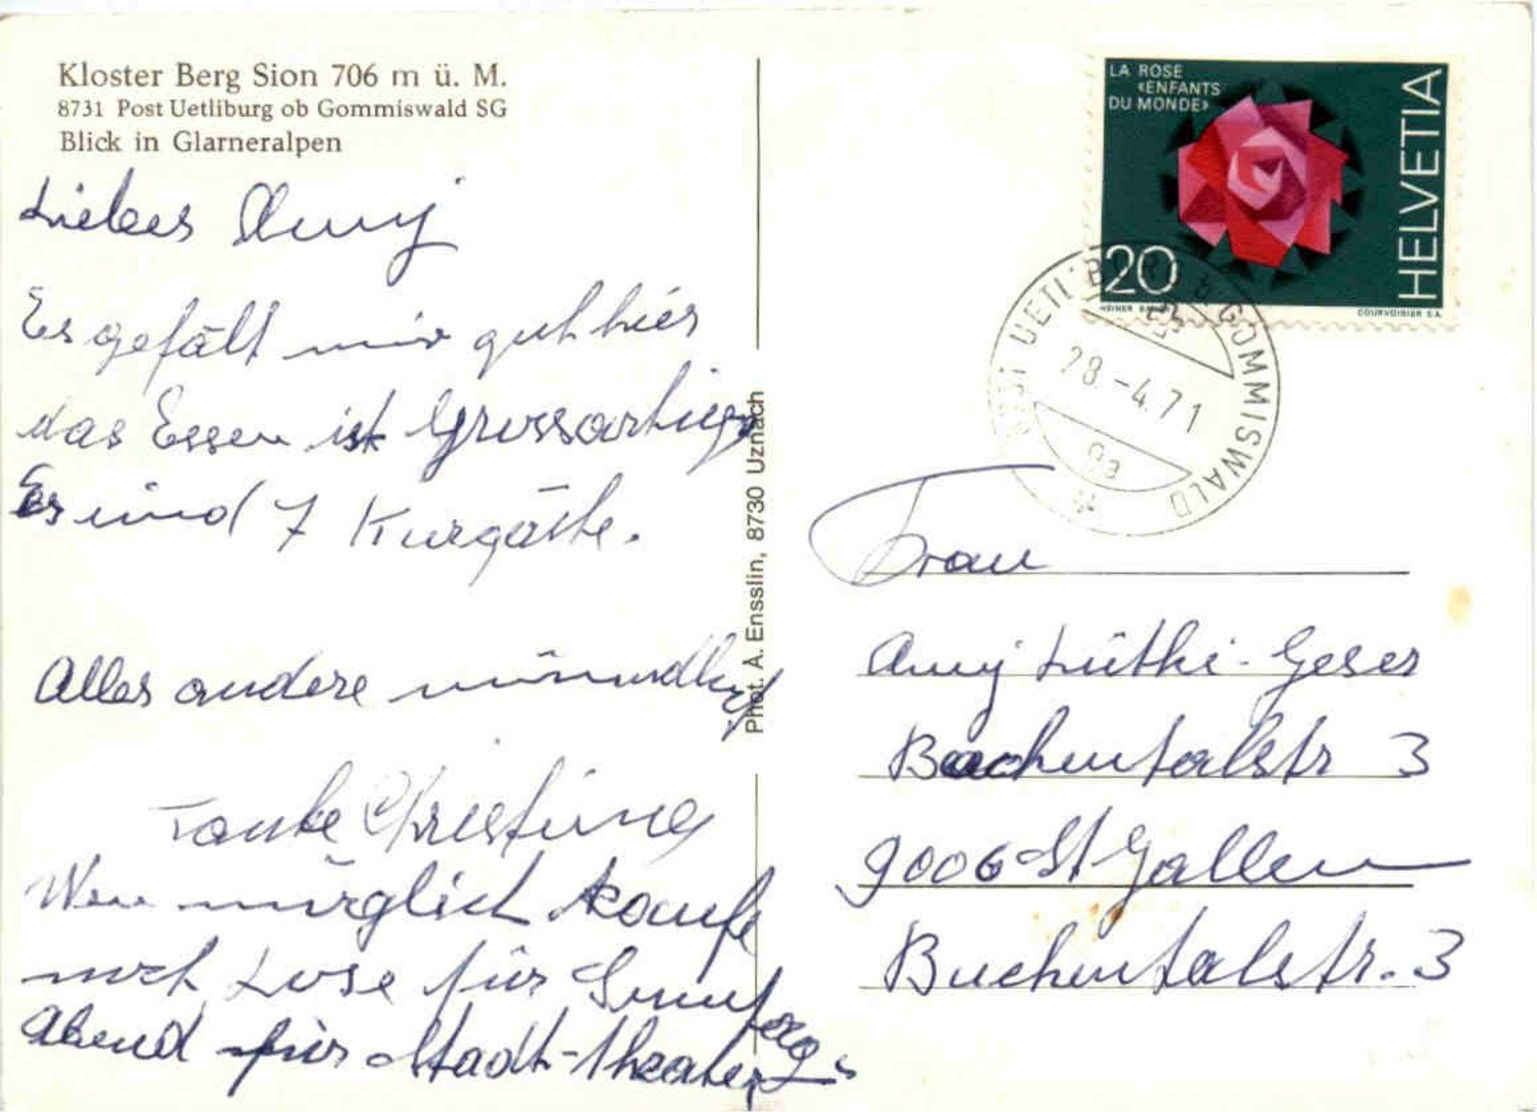 Kloster Berg Sion 706 m ü. M.
8731 Post Uetliburg ob Gommiswald SG
Blick in Glarneralpen
Liebes Anny
Es gefält mir gut hier
das Essen ist Grossartig
Es sind 7 Kurgäste.
Alles andere mündlich
Tante Christine
Wen möglich kaufe
noch Lose für Samstag
Abend für Stadt-Theater
Phot. A. Ensslin, 8730 Uznach
LA ROSE
«ENFANTS
DU MONDE»
HELVETIA
20
COURVOISIER S.A.
POST UETLIBURG b. GOMMISWALD
28-4.71
Frau
Anny Lüthi-Geser
Buchentalstr 3
9006 St Gallen
Buchentalstr. 3